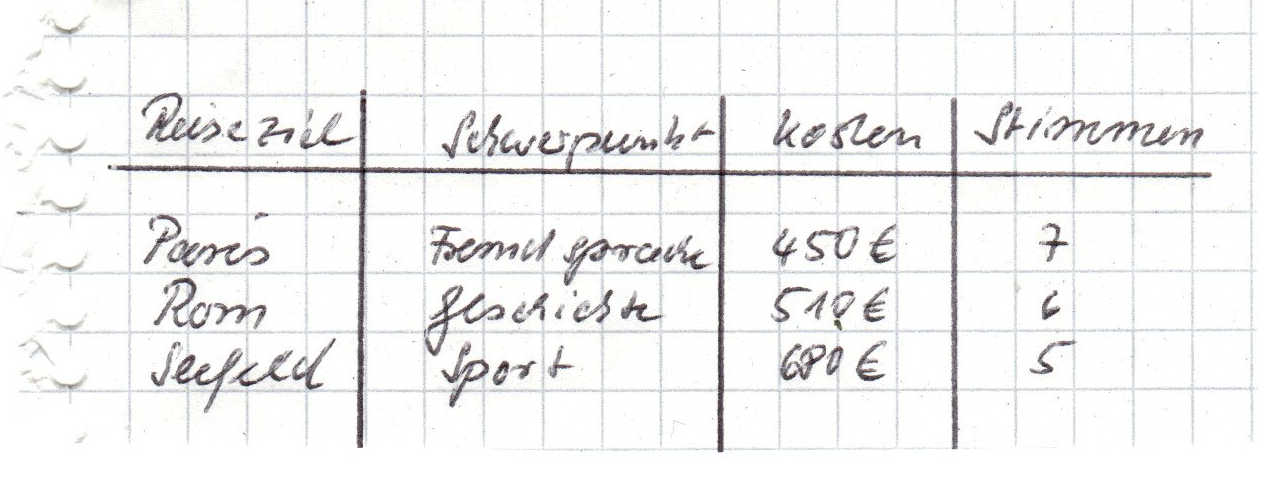 Reiseziel Schwerpunkt Kosten Stimmen
Paris Fremdsprache 450 € 7
Rom Geschichte 510 € 6
Seefeld Sport 680 € 5